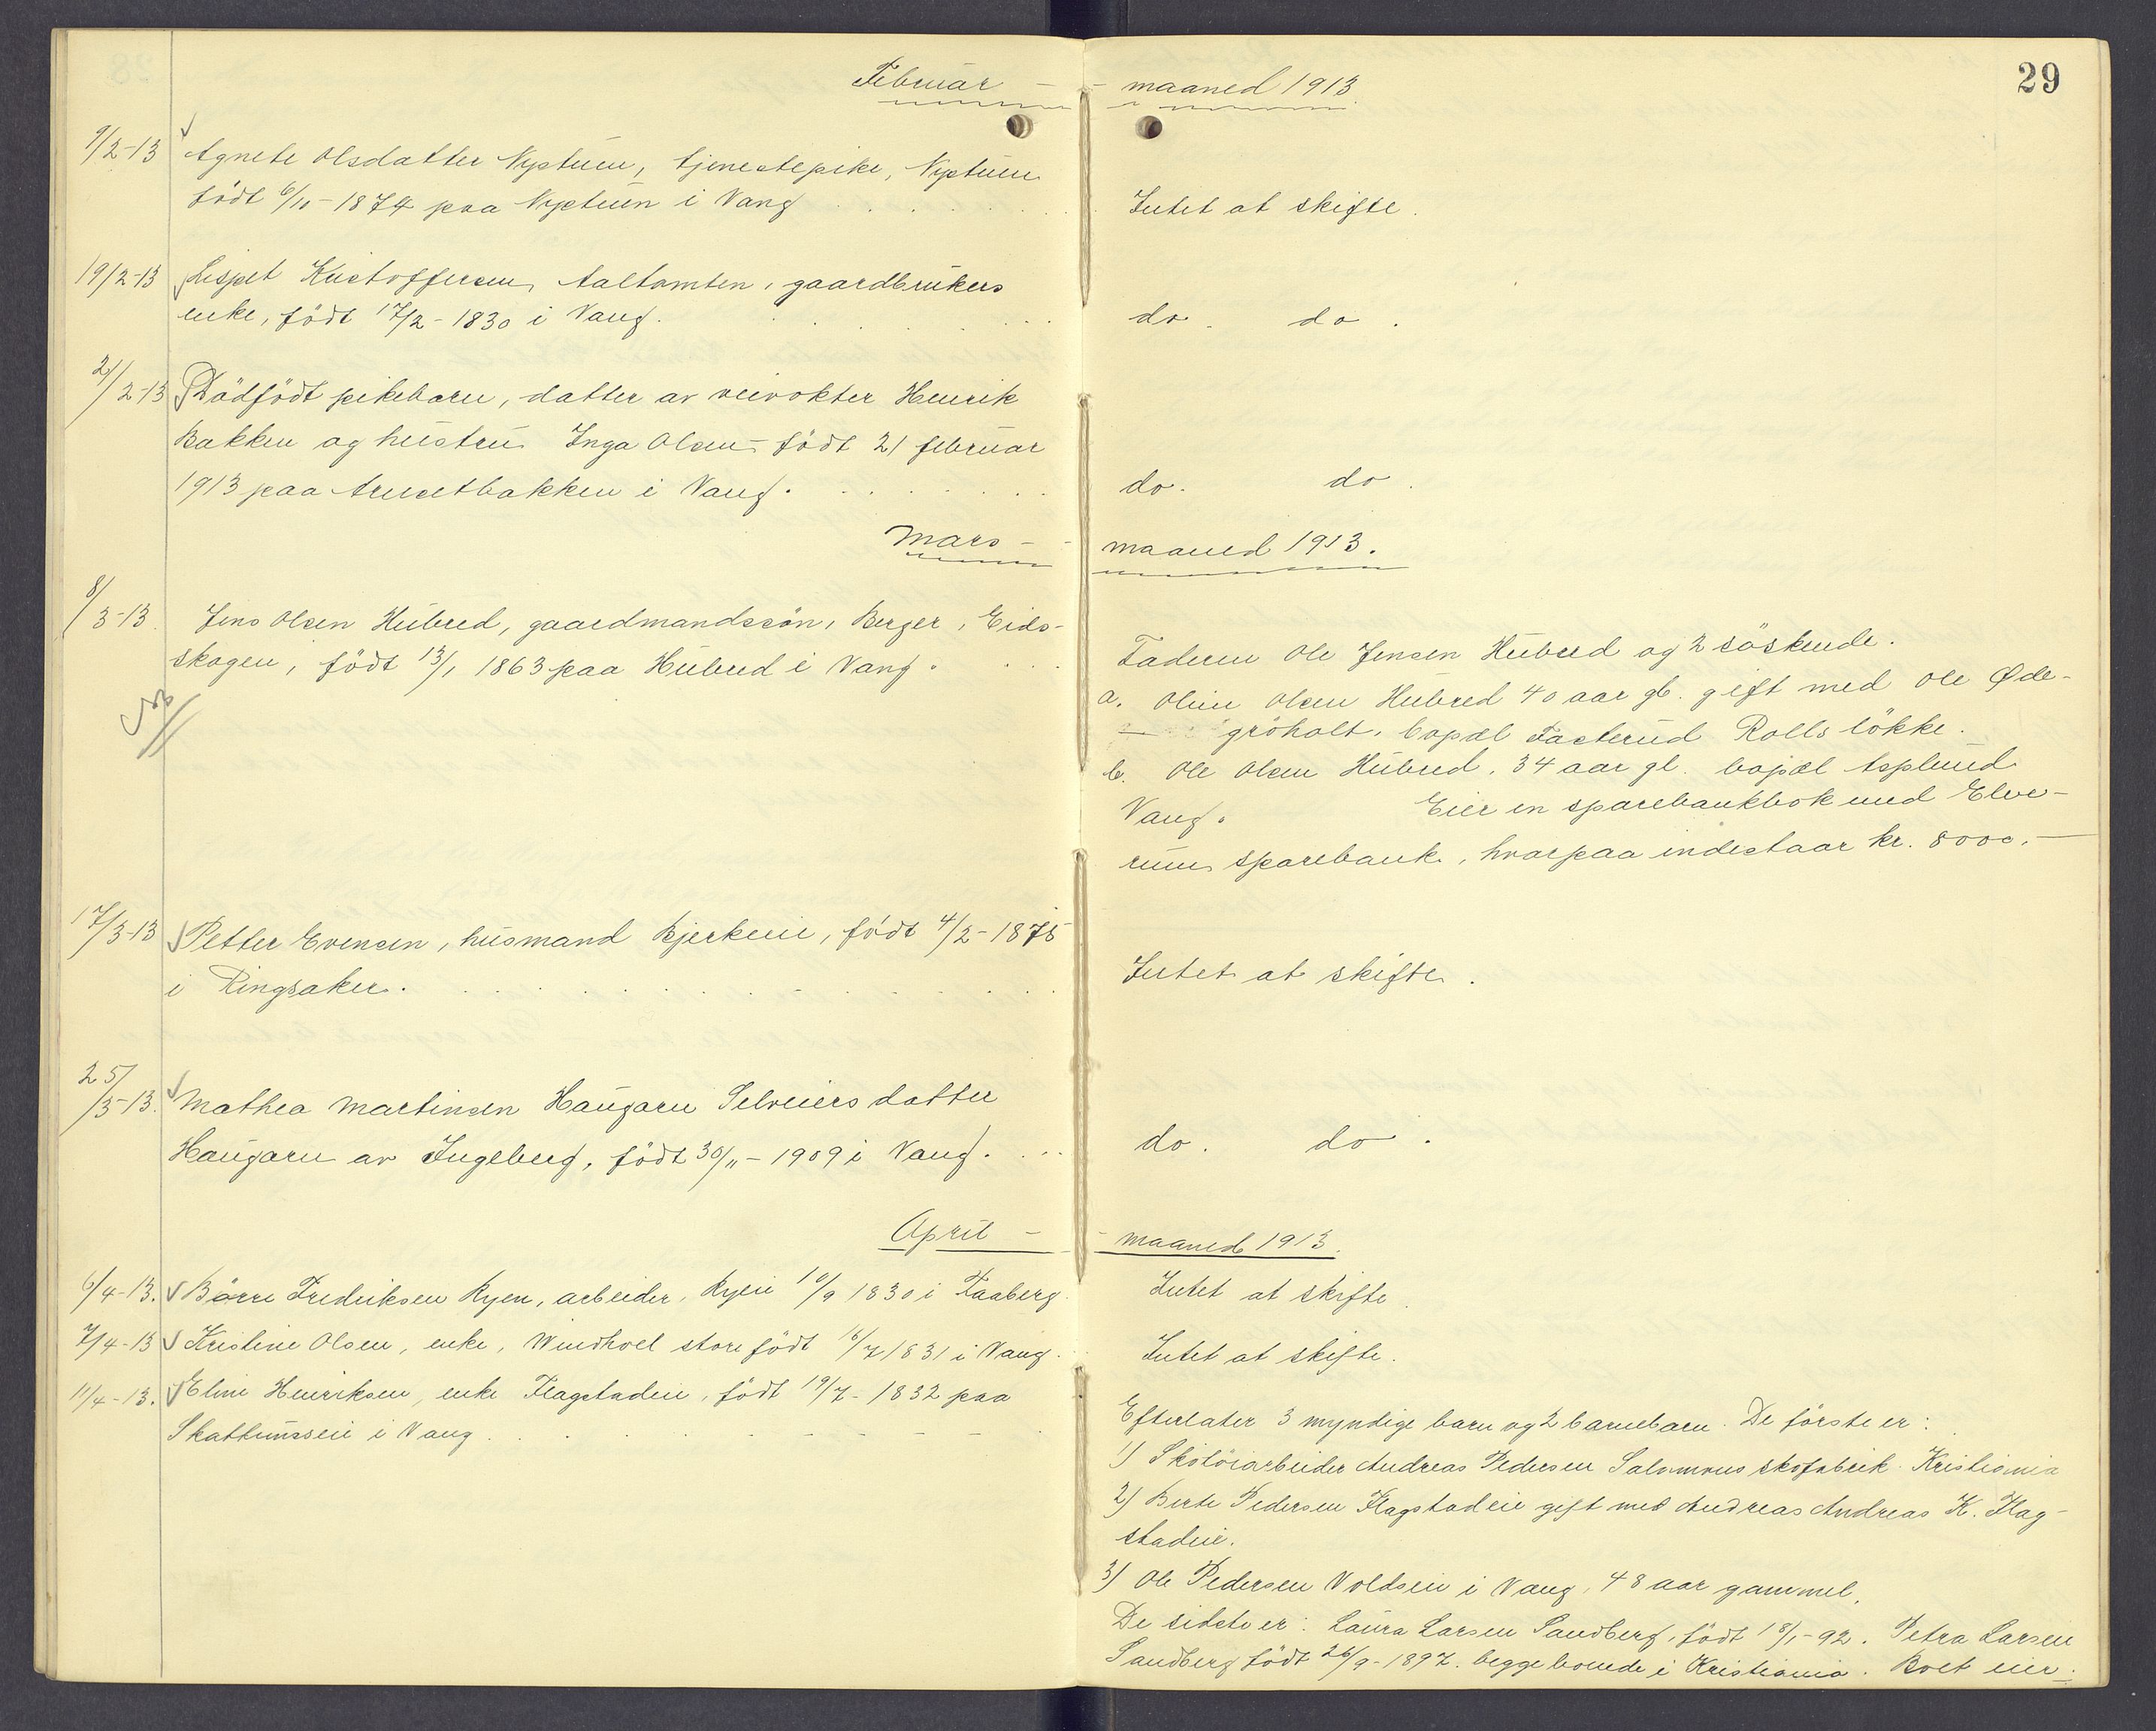 29
Februar - - maaned 1913
9/2-13 Agnete Olsdatter Nystuen, tjenestepike, Nystuen
födt 6/10-1874 paa Nystuen i Vang . . . . . . Intet at skifte.
19/2-13 Lispet Kristoffersen, Aaltomten, gaardbrukers
enke, födt 17/2-1830 i Vang. . . . . . . do. do.
21/2-13 Dödfödt pikebarn, datter av veivokter Henrik
Bakken og hustru Inga Olsen födt 21 februar
1913 paa Arnsetbakken i Vang. . . . . . . do. do.
Mars - - maaned 1913.
8/3-13. Jens Olsen Hubred, gaardmandssön, Berger, Eids-
skogen, födt 13/1 1863 paa Hubred i Vang. . . .
Faderen Ole Jensen Hubred og 2 söskende.
a. Oline Olsen Hubred 40 aar gl. gift med Ole Øde-
gröholt, bopæl Fasterud Rolls lökke.
b. Ole Olsen Hubred, 34 aar gl. bopæl Asplund
Vang. Eier en sparebankbok med Elve-
rums sparebank, hvorpaa indestaar kr. 8000,-
17/3-13 Petter Evensen, husmand Bjerkeeie, födt 4/2-1875
i Ringsaker. . . . . . . . . . Intet at skifte.
25/3-13. Mathea Martinsen Haugarn Selveiers datter
Haugarn av Ingeberg, födt 30/11-1909 i Vang. . . . do. do.
April - - maaned 1913.
6/4-13. Börre Fredriksen Ryen, arbeider, Ryeie 10/9 1830 i Faaberg. Intet at skifte.
7/4-13 Kristine Olsen, enke, Windhoel store födt 16/7 1831 i Vang. Intet at skifte.
11/4-13. Eline Henriksen, enke Flagstadeie, födt 19/7-1832 paa
Skattumseie i Vang . . . . . . . . .
Efterlater 3 myndige barn og 2 barnebarn. De förste er:
1) Skotöiarbeider Andreas Pedersen Salomons skofabrik Kristiania
2) Berte Pedersen Flagstadeie gift med Andreas Andreas K. Flag-
stadeie.
3) Ole Pedersen Voldseie i Vang, 48 aar gammel.
De sidste er: Laura Larsen Sandberg, födt 18/1-92. Petra Larsen
Sandberg födt 26/9-1897. begge boende i Kristiania. Boet eier: